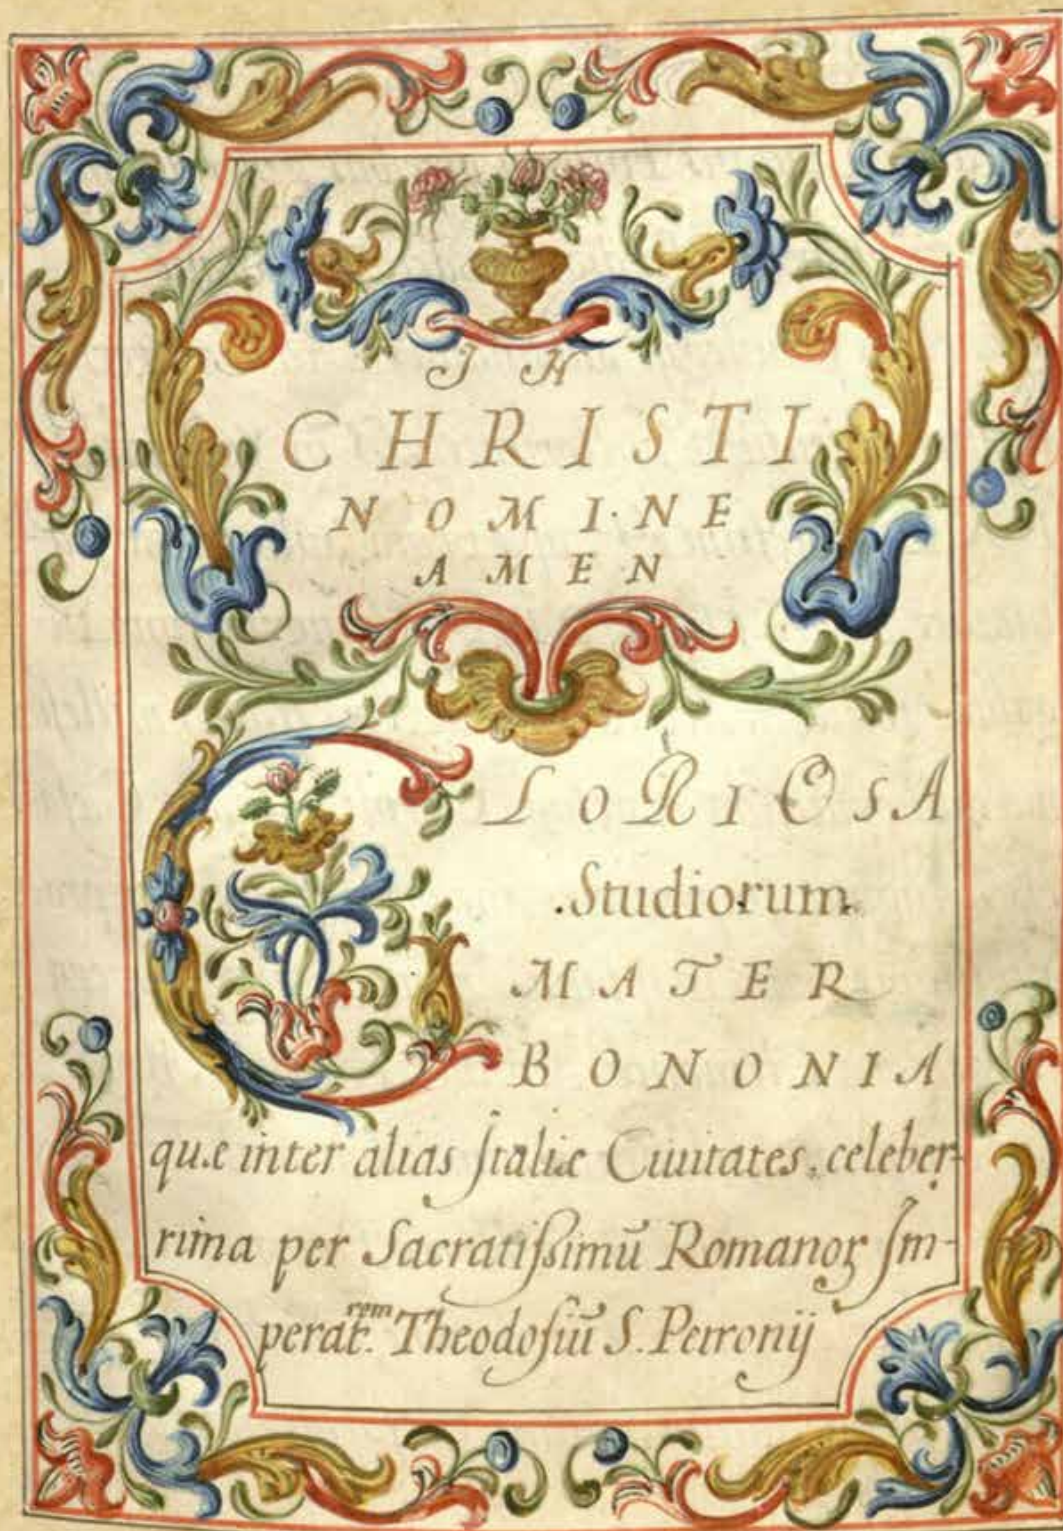 IN
CHRISTI
NOMI·NE
AMEN
GLORIOSA
.Studiorum.
MATER
BONONIA
quæ inter alias Italiæ Ciuitates, celeber-
rima per Sacratißimū Romanoꝝ Im-
perat.rem Theodosiū S. Petronij